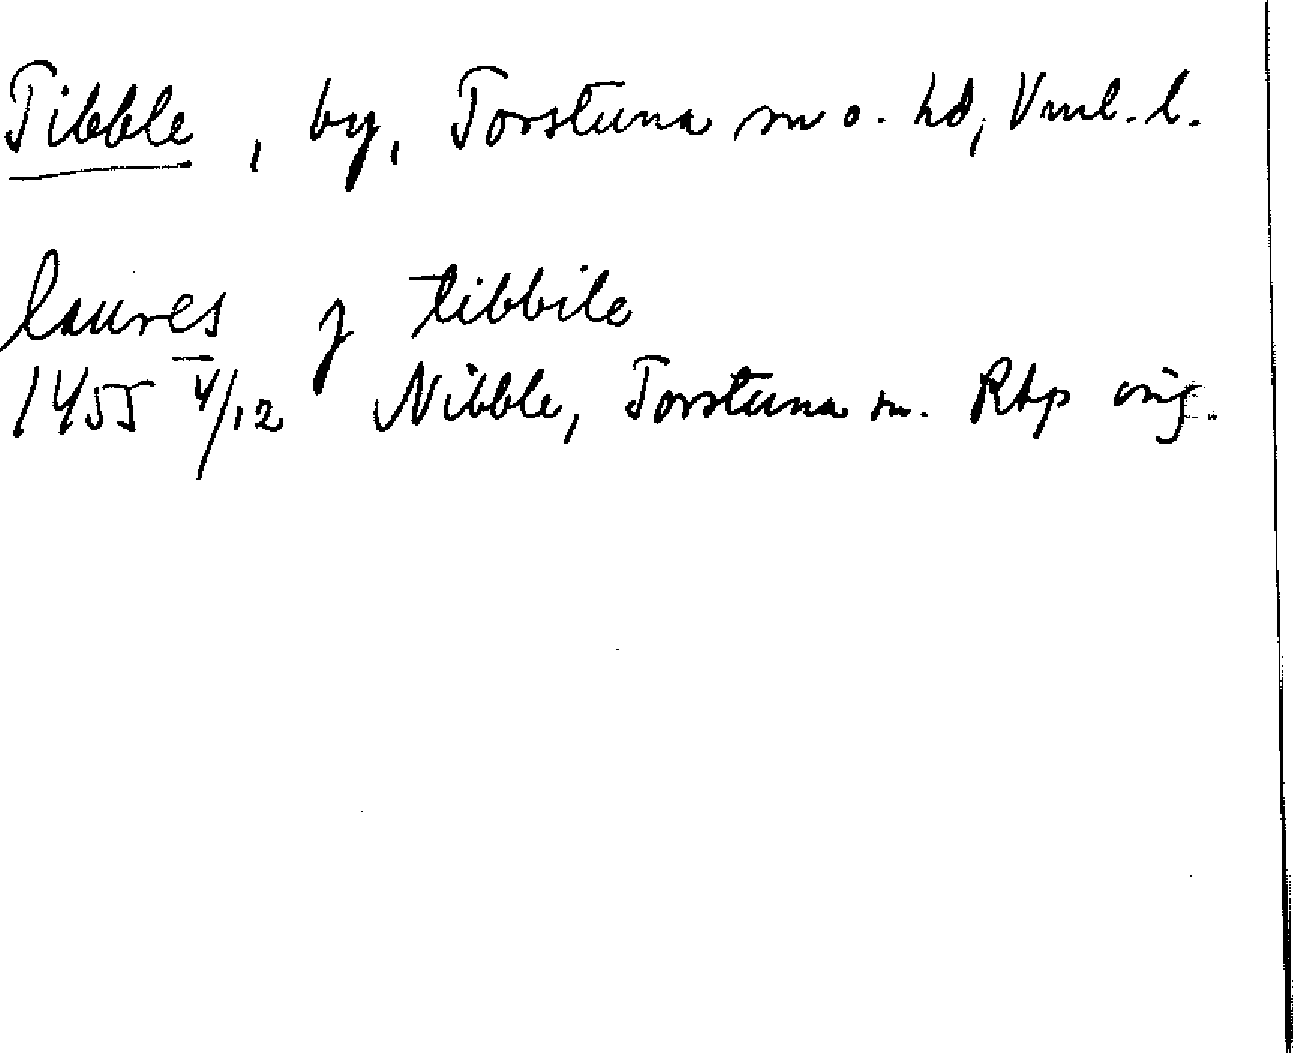 Tibble, by, Torstuna sn o. hd, Vml. l.
laures j tibbile
1455 4/12 Nibble, Torstuna sn. Rbp orig.